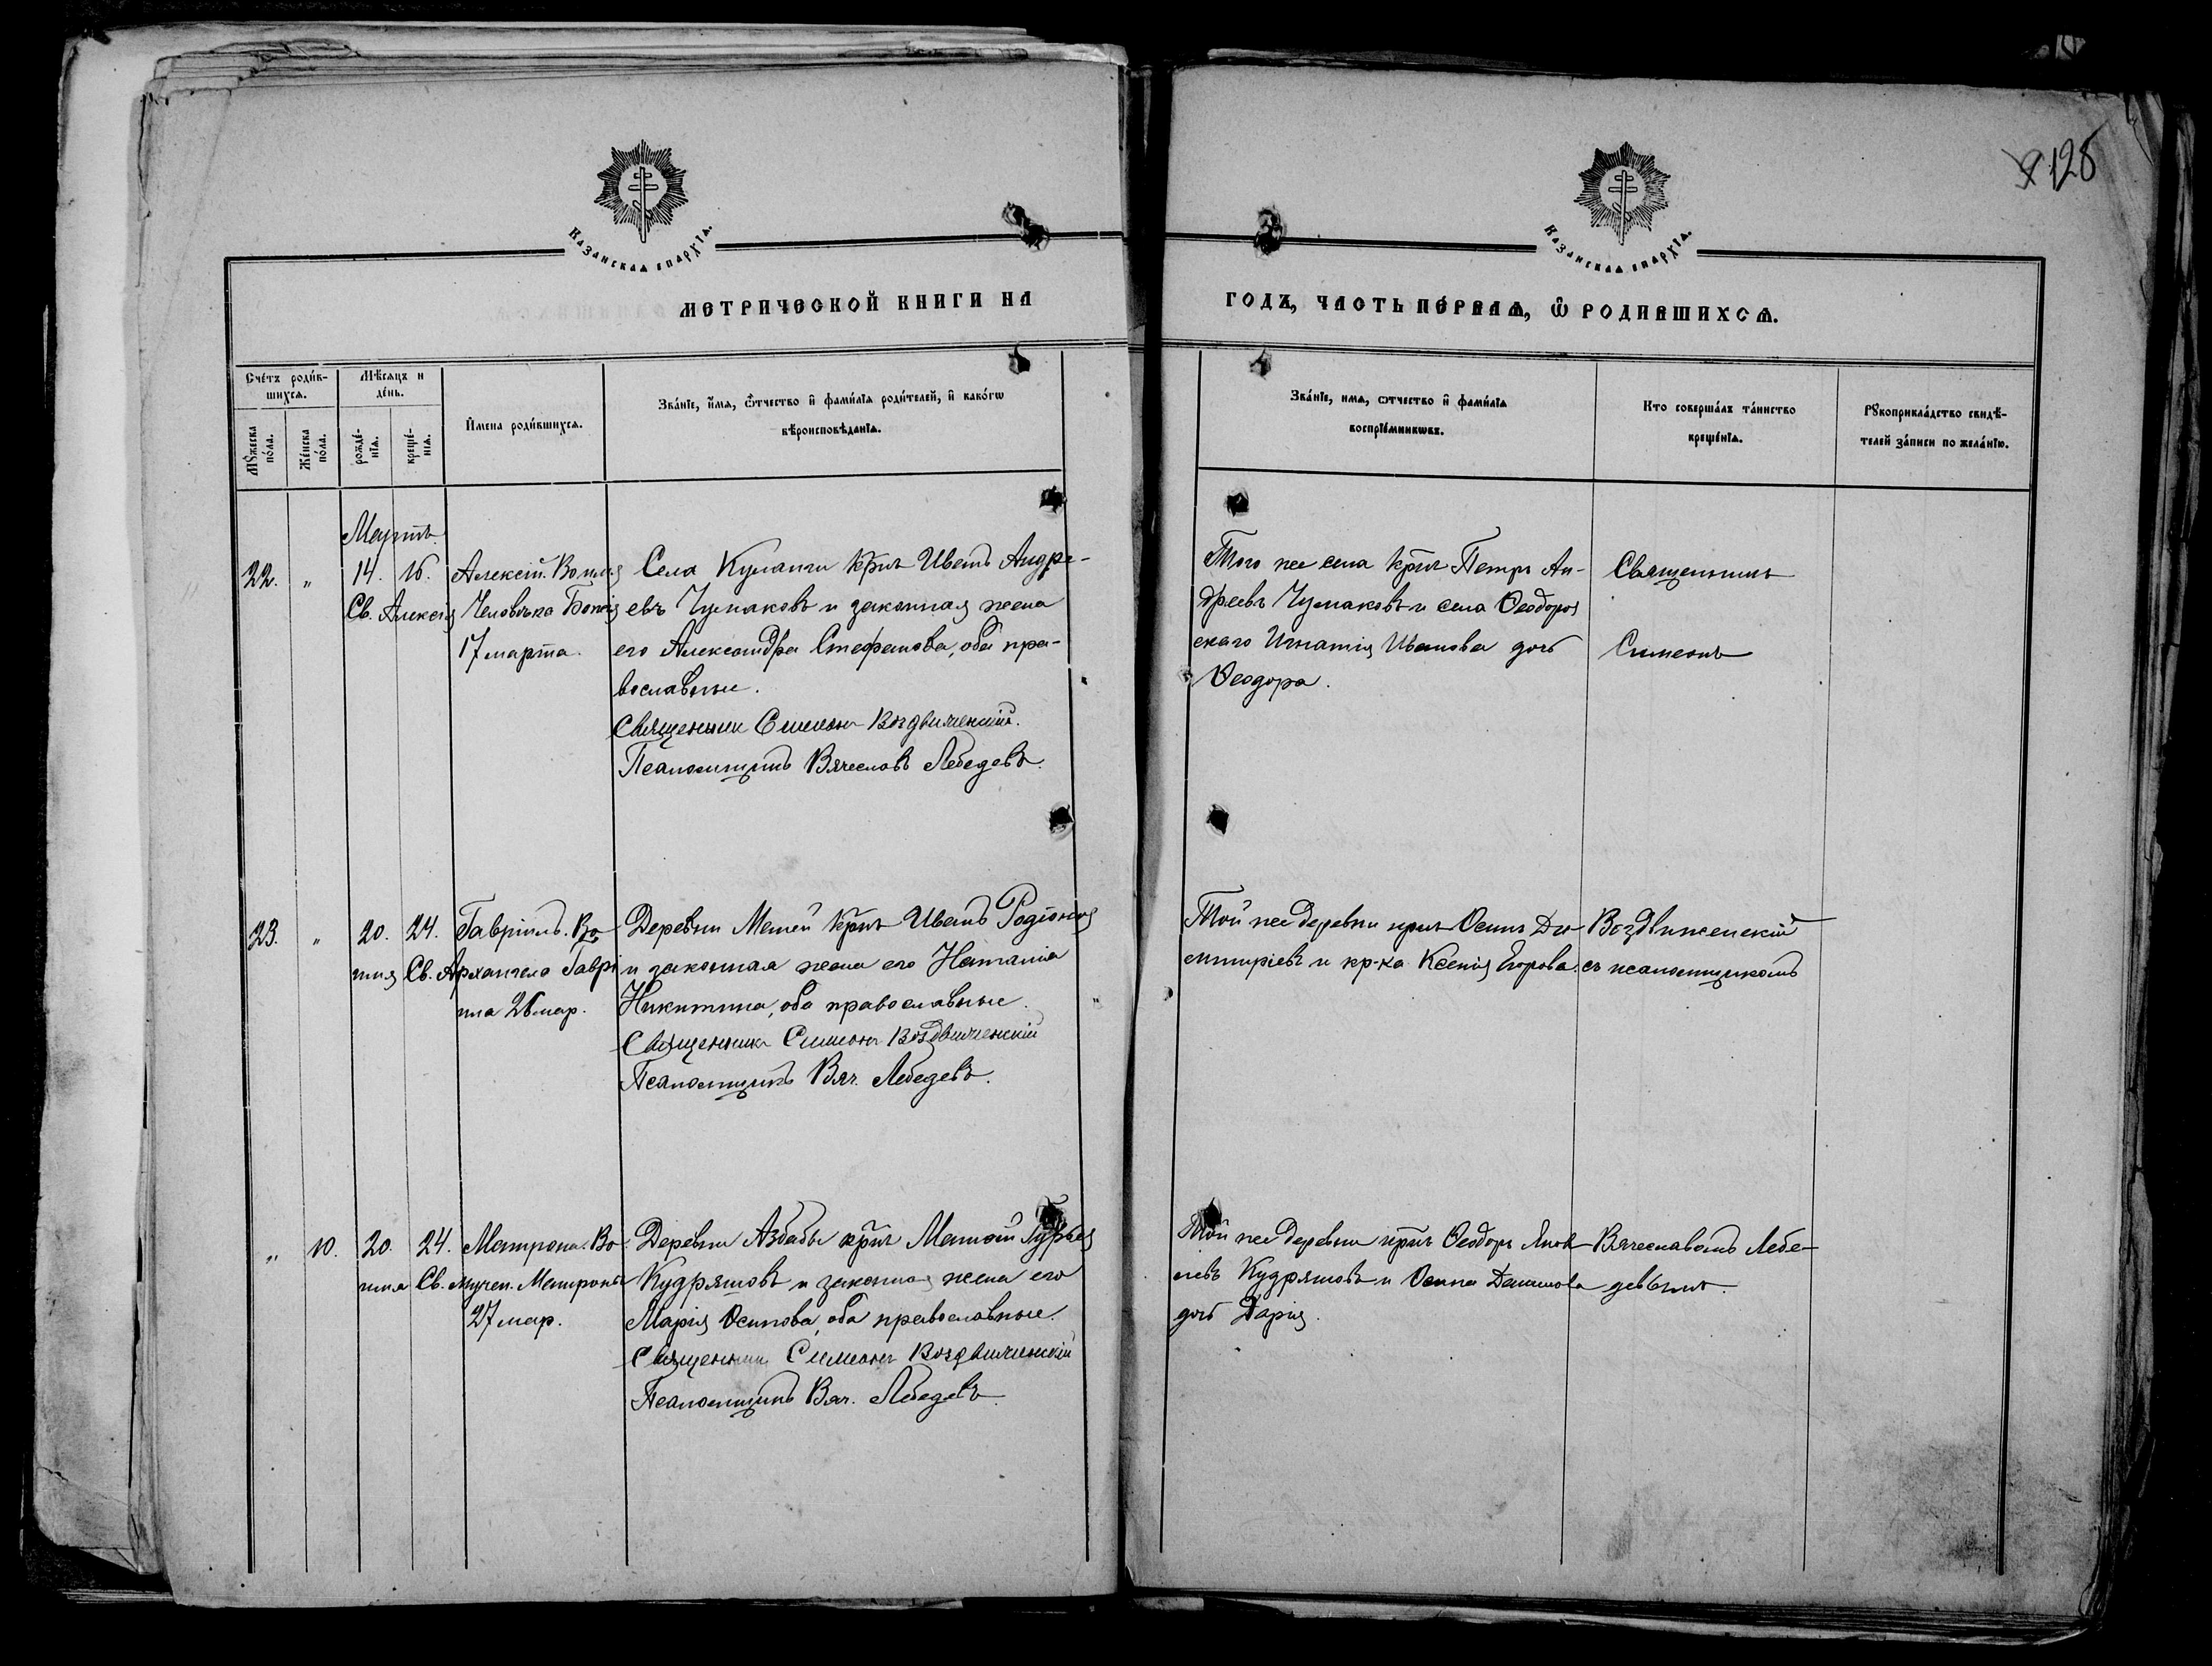 128
Казанская епархїѧ.
Казанская епархїѧ.
МЕТРИЧЕСКОЙ КНИГИ НА
ГОДЪ, ЧАСТЬ ПЕ́РВАѦ, Ѡ РОДИВШИХСѦ.
Сче́тъ роди́в-
шихсѧ.
Мѣ́сѧцъ и
де́нь.
Мꙋ́жеска
по́ла.
Же́нска
по́ла.
рожде́-
нїѧ.
креще́-
нїѧ.
И҆мена роди́вшихсѧ.
Зва́нїе, и҆мѧ, ѻ҆́тчество и҆ фами́лїѧ роди́телей, и҆ како́гѡ
вѣроисповѣ́данїѧ.
Зва́нїе, имѧ, ѻтчество и҆ фами́лїѧ
воспрїе́мникѡвъ.
Кто соверша́лъ та́инство
креще́нїѧ.
Рꙋкоприкла́дство свидѣ́-
телей за́писи по жела́нїю.
Мартъ.
22. " 14. 16. Алексій. Во имя
Св. Алексія Человѣка Божія
17 марта.
Села Куланги кр-нъ Иванъ Андре-
евъ Чумаковъ и законная жена
его Александра Стефанова, оба пра-
вославные.
Священник Симеонъ Воздвиженскій.
Псаломщикъ Вячеславъ Лебедевъ.
Того же села кр-нъ Петръ Ан-
дреевъ Чумаковъ и села Ѳеодоров
скаго Игнатія Иванова дочь
Ѳеодора.
Священникъ
Симеонъ
23. " 20. 24. Гавріилъ. Во
имя Св. Архангела Гаврі
ила 26 мар.
Деревни Мемей кр-нъ Иванъ Родіонов
и законная жена его Наталіа
Никитина, оба православные.
Священникъ Симеонъ Воздвиженскій
Псаломщикъ Вяч. Лебедевъ.
Той же деревни кр-нъ Осипъ Ди-
митріевъ и кр-ка Ксенія Егорова.
Воздвиженскій
съ псаломщикомъ
" 10. 20. 24. Матрона. Во
имя Св. мучен. Матроны
27 мар.
Деревни Азбабы кр-нъ Матѳей Гурьев
Кудряшовъ и законная жена его
Марія Осипова, оба православные.
Священникъ Симеонъ Воздвиженскій
Псаломщикъ Вяч. Лебедевъ.
Той же деревни кр-нъ Ѳеодоръ Яков
левъ Кудряшовъ и Осипа Данилова
дочь Дарія.
Вячеславомъ Лебе-
девымъ.